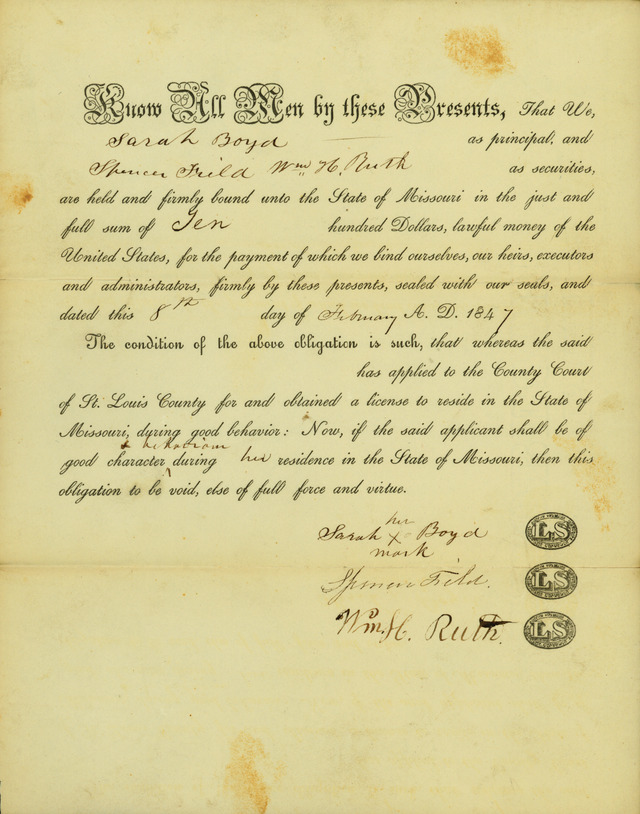 Know All Men by these Presents, That We,
Sarah Boyd as principal, and
Spencer Field Wm. H. Ruth as securities,
are held and firmly bound unto the State of Missouri in the just and
full sum of Ten hundred Dollars, lawful money of the
United States, for the payment of which we bind ourselves, our heirs, executors
and administrators, firmly by these presents, sealed with our seals, and
dated this 8th day of February A. D. 1847
The condition of the above obligation is such, that whereas the said
has applied to the County Court
of St. Louis County for and obtained a license to reside in the State of
Missouri, during good behavior: Now, if the said applicant shall be of
& behaviour
good character ^ during her residence in the State of Missouri, then this
obligation to be void, else of full force and virtue.
her
Sarah X Boyd LS
mark
Spencer Field. LS
Wm. H. Ruth. LS